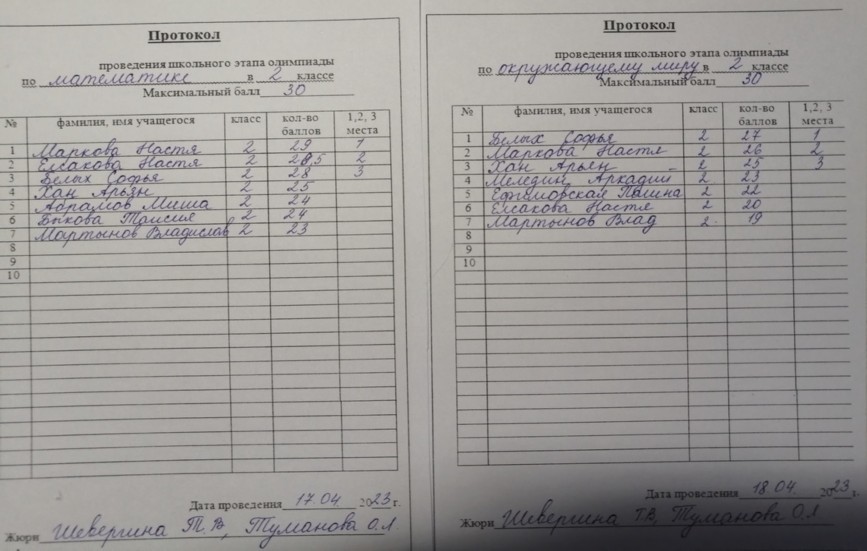 Протокол
проведения школьного этапа олимпиады
по математике в 2 классе
Максимальный балл 30
№ фамилия, имя учащегося класс кол-во баллов 1,2, 3 места
1 Маркова Настя 2 29 1
2 Елсакова Настя 2 28,5 2
3 Белых Софья 2 28 3
4 Хан Арьян 2 25
5 Абрамов Миша 2 24
6 Быкова Таисия 2 24
7 Мартынов Владислав 2 23
8
9
10
Дата проведения 17.04 2023 г.
Жюри Шевергина Т.В., Туманова О.Л
Протокол
проведения школьного этапа олимпиады
по окружающему миру в 2 классе
Максимальный балл 30
№ фамилия, имя учащегося класс кол-во баллов 1,2, 3 места
1 Белых Софья 2 27 1
2 Маркова Настя 2 26 2
3 Хан Арьян 2 25 3
4 Меледин Аркадий 2 23
5 Полина 2 22
6 Елсакова Настя 2 20
7 Мартынов Влад 2 19
8
9
10
Дата проведения 18.04 2023 г.
Жюри Шевергина Т.В., Туманова О.Л